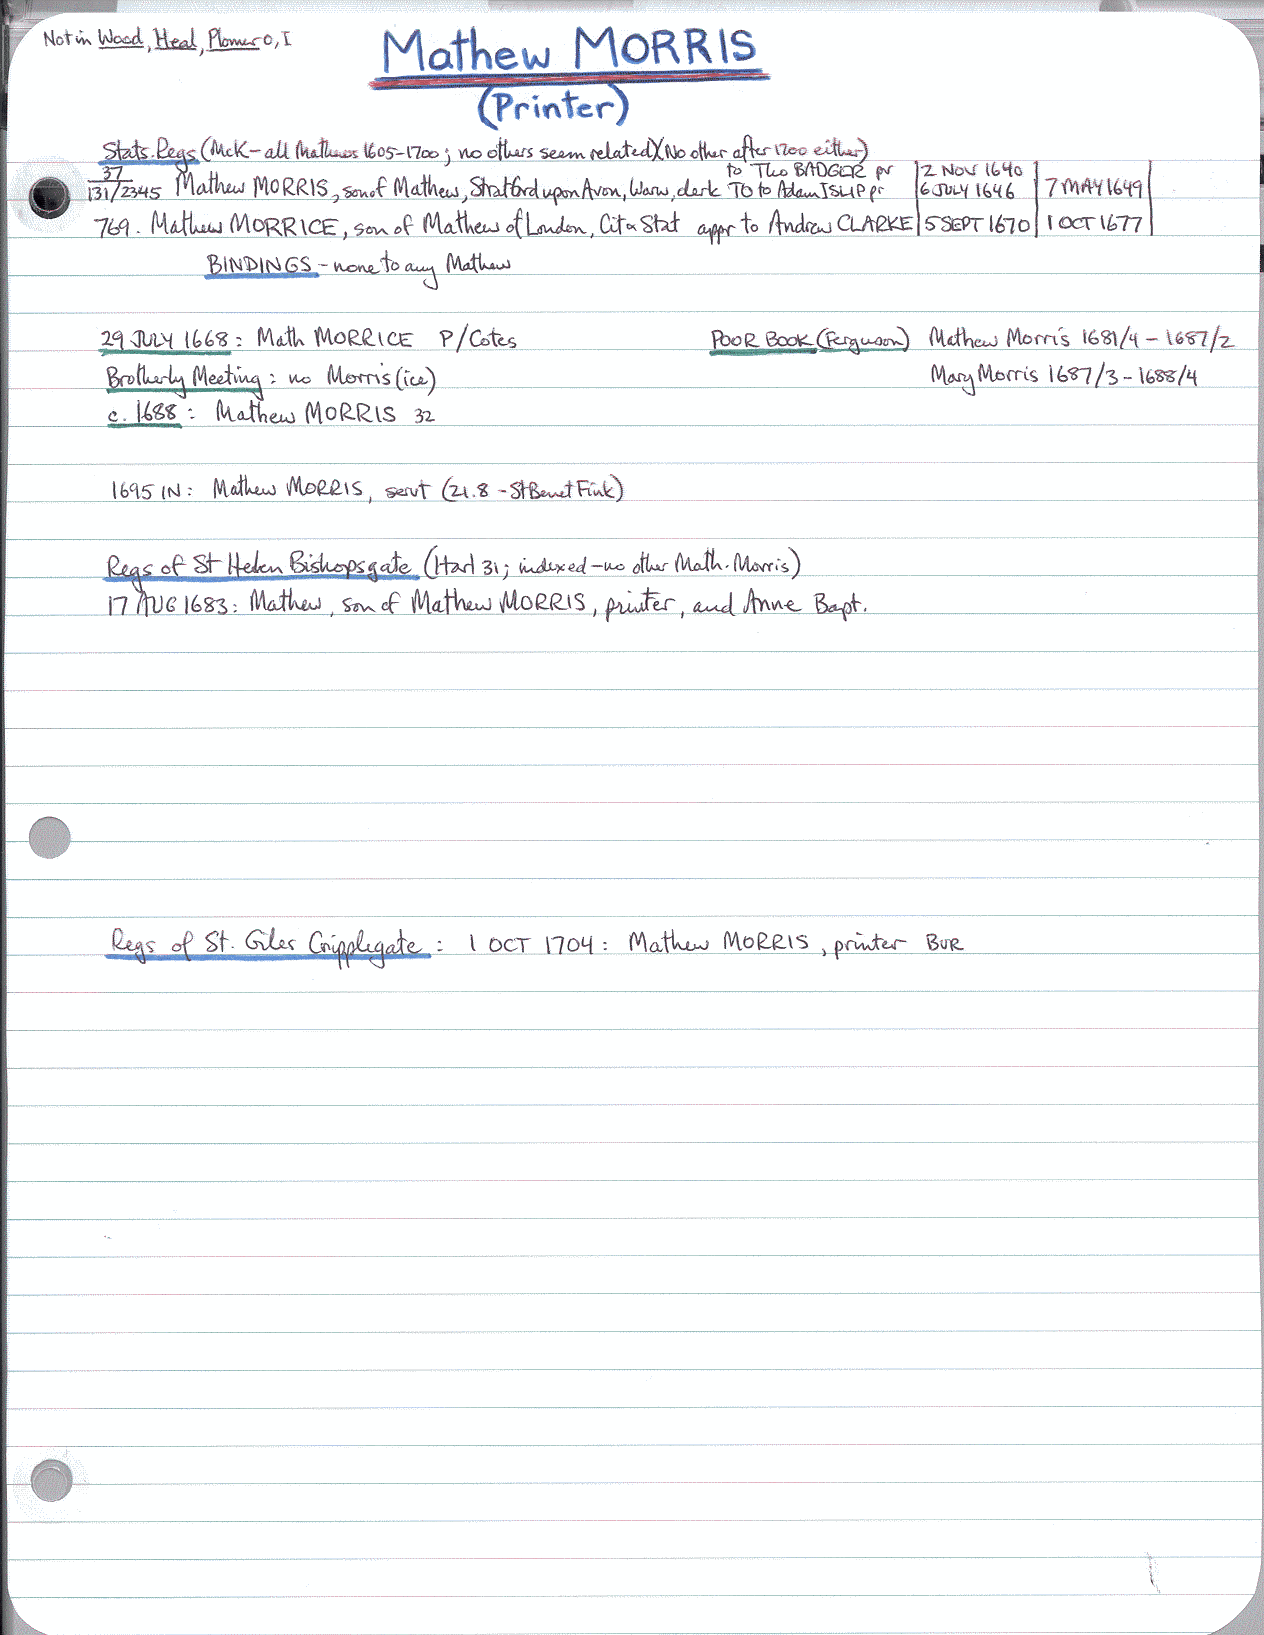 Not in Wood, Heal, Plomer 0, I
Mathew MORRIS
(Printer)
Stats. Regs (McK - all Mathews 1605-1700; no others seem related)(No other after 1700 either)
37 to Tho BADGER pr 2 NOV 1640
131/2345 Mathew MORRIS, son of Mathew, Stratford upon Avon, Warw, clerk TO to Adam ISLIP pr 6 JULY 1646 7 MAY 1649
769. Mathew MORRICE, son of Mathew of London, Cit & Stat appr to Andrew CLARKE 5 SEPT 1670 1 OCT 1677
BINDINGS - none to any Mathew
29 JULY 1668: Math MORRICE P/Cotes POOR BOOK (Ferguson) Mathew Morris 1681/4 - 1687/2
Brotherly Meeting: no Morris(ice) Mary Morris 1687/3 - 1688/4
c. 1688: Mathew MORRIS 32
1695 IN: Mathew MORRIS, servt (21.8 - St Benet Fink)
Regs of St Helen Bishopsgate (Harl 31; indexed - no other Math. Morris)
17 AUG 1683: Mathew, son of Mathew MORRIS, printer, and Anne Bapt.
Regs of St. Giles Cripplegate: 1 OCT 1704: Mathew MORRIS, printer BUR